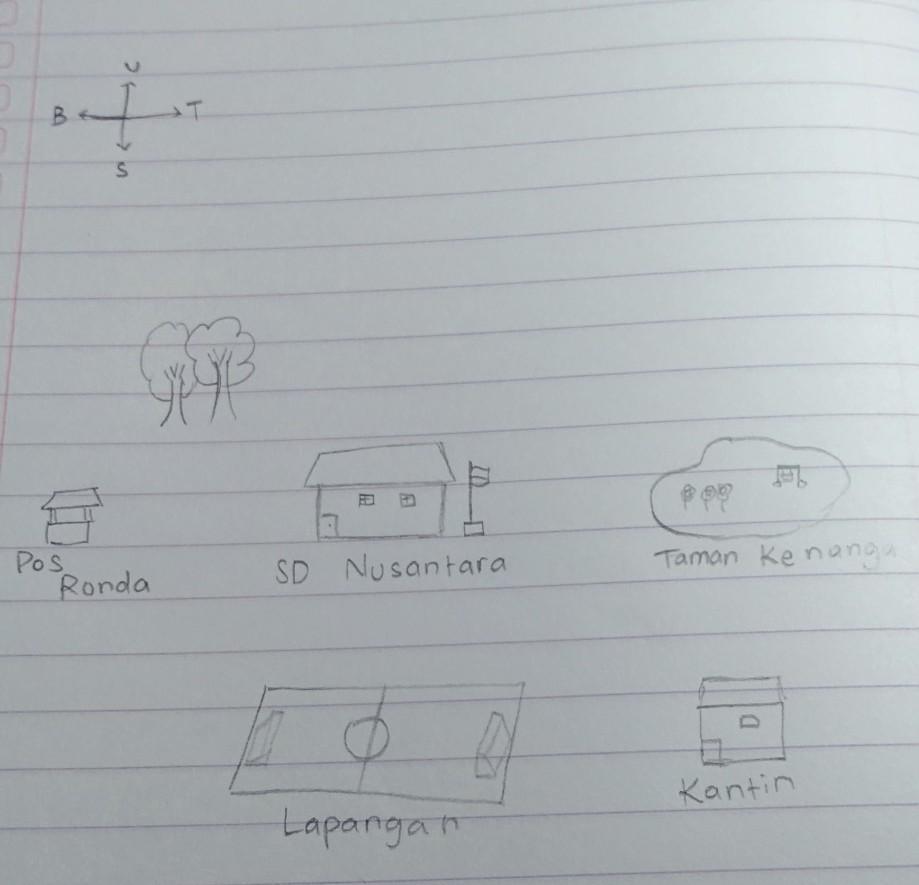 U
B T
S
Pos
Ronda
SD Nusantara
Taman Kenanga
Lapangan
Kantin